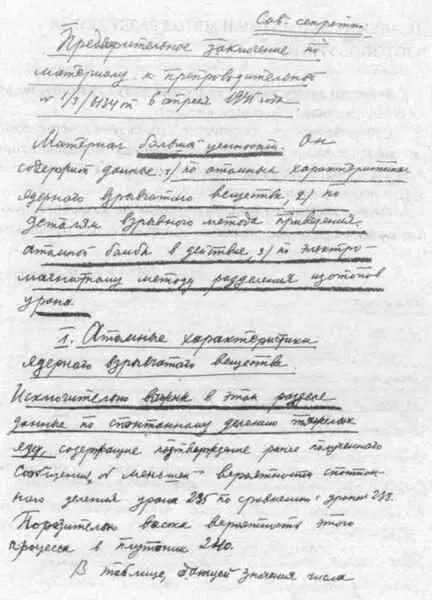 Сов. секретно.
Предварительное заключение по
материалу к препроводительной
№ 1/3/6134 от 6 апреля 1945 года
Материал большой ценности. Он
содержит данные: 1) по атомным характеристикам
ядерного взрывчатого вещества, 2) по
деталям взрывного метода приведения
атомной бомбы в действие, 3) по электро-
магнитному методу разделения изотопов
урана.
1. Атомные характеристики
ядерного взрывчатого вещества.
Исключительно важны в этом разделе
данные по спонтанному делению тяжелых
ядер, содержащие подтверждение ранее полученного
сообщения о меньшей вероятности спонтан-
ного деления урана 235 по сравнению с ураном 238.
Поразительно высока вероятность этого
процесса в плутонии 240.
В таблице, дающей значения числа